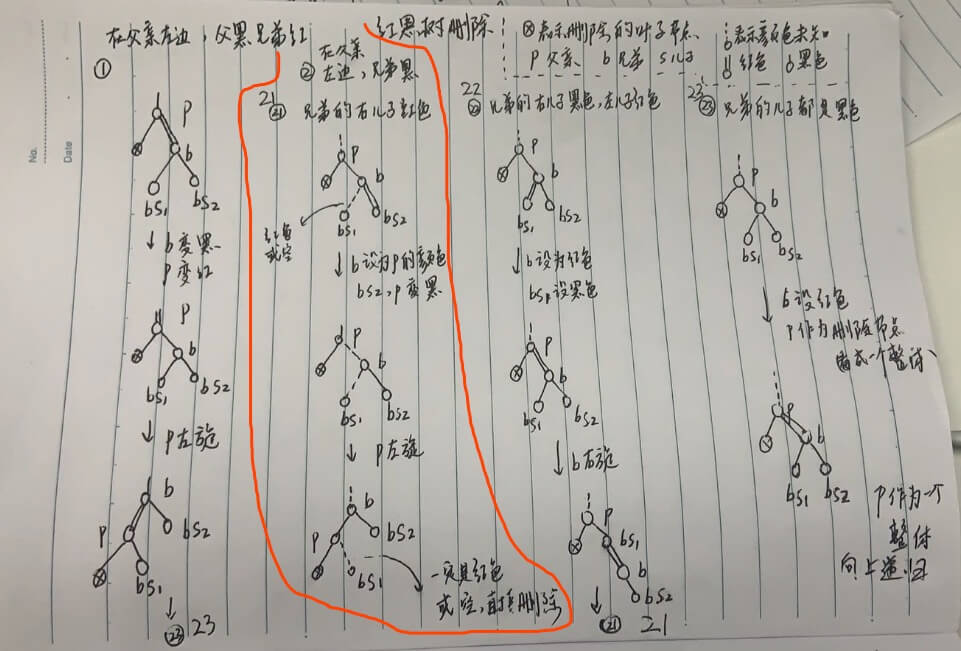 No.
Date
在父亲左边，父黑兄弟红
①
P
b
bS1
bS2
↓ b变黑
P变红
P
b
bS1
bS2
↓ P左旋
b
P
bS2
bS1
↓
㉓ 23
红黑树删除
ⓧ表示删除的叶子节点
P 父亲 b 兄弟 S儿子
表示颜色未知
红色 黑色
在父亲
② 左边，兄弟黑
21
㉑ 兄弟的右儿子红色
P
b
bS1
bS2
红色
或空
↓ b设为P的颜色
bS2，P变黑
P
b
bS1
bS2
↓ P左旋
b
P
bS2
bS1
一定是红色
或空，直接删除
22
㉒ 兄弟的右儿子黑色，左儿子红色
P
b
bS1
bS2
↓ b设为红色
设黑色
P
b
bS1
bS2
↓ b右旋
P
bS1
b
bS2
↓
㉑ 21
23
㉓ 兄弟的儿子都是黑色
P
b
bS1
bS2
↓ b设红色
P作为删除节点
看成一个整体
P
b
bS1
bS2
P作为一个
整体
向上递归